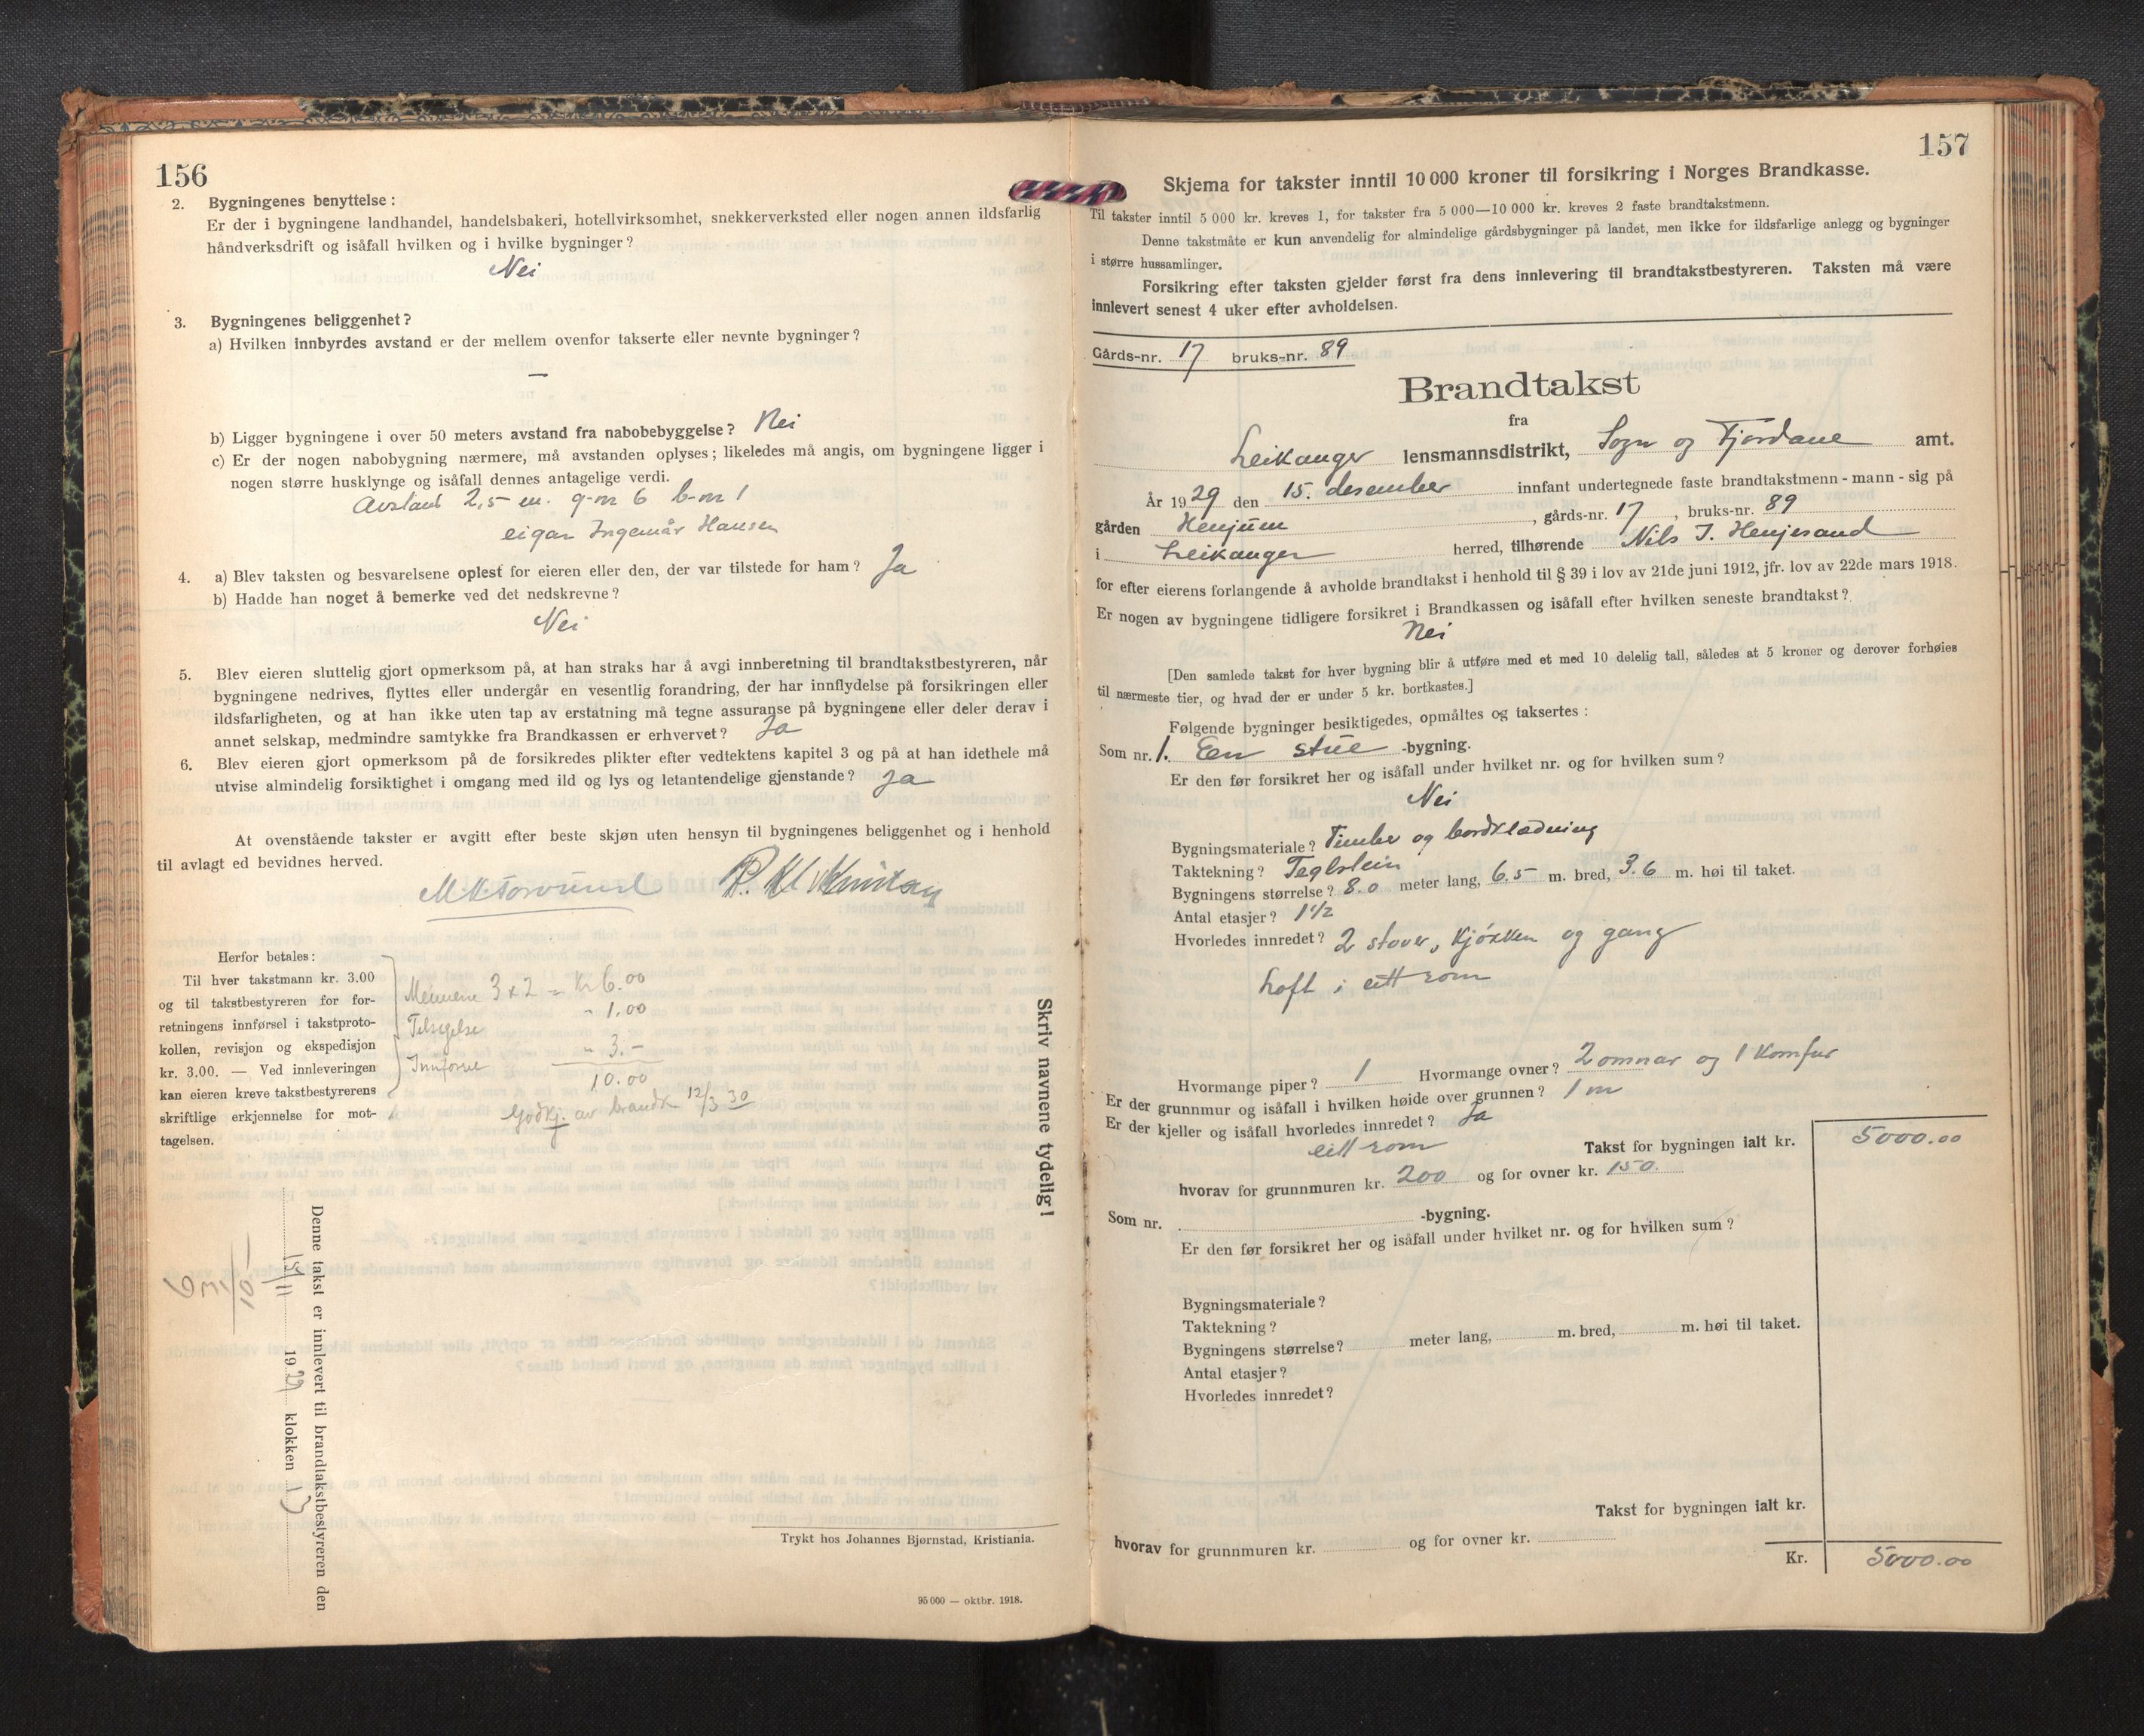 156
2. Bygningenes benyttelse:
Er der i bygningene landhandel, handelsbakeri, hotellvirksomhet, snekkerverksted eller nogen annen ildsfarlig
håndverksdrift og isåfall hvilken og i hvilke bygninger?
Nei
3. Bygningenes beliggenhet?
a) Hvilken innbyrdes avstand er der mellem ovenfor takserte eller nevnte bygninger?
—
b) Ligger bygningene i over 50 meters avstand fra nabobebyggelse? Nei
c) Er der nogen nabobygning nærmere, må avstanden oplyses; likeledes må angis, om bygningene ligger i
nogen større husklynge og isåfall dennes antagelige verdi.
Avstand 2,5 m. g-nr 6 b-nr 1
eigar Ingemår Hansen
4. a) Blev taksten og besvarelsene oplest for eieren eller den, der var tilstede for ham? Ja
b) Hadde han noget å bemerke ved det nedskrevne?
Nei
5. Blev eieren sluttelig gjort opmerksom på, at han straks har å avgi innberetning til brandtakstbestyreren, når
bygningene nedrives, flyttes eller undergår en vesentlig forandring, der har innflydelse på forsikringen eller
ildsfarligheten, og at han ikke uten tap av erstatning må tegne assuranse på bygningene eller deler derav i
annet selskap, medmindre samtykke fra Brandkassen er erhvervet? Ja
6. Blev eieren gjort opmerksom på de forsikredes plikter efter vedtektens kapitel 3 og på at han idethele må
utvise almindelig forsiktighet i omgang med ild og lys og letantendelige gjenstande? Ja
At ovenstående takster er avgitt efter beste skjøn uten hensyn til bygningenes beliggenhet og i henhold
til avlagt ed bevidnes herved.
Herfor betales:
Til hver takstmann kr. 3.00
og til takstbestyreren for for-
retningens innførsel i takstproto-
kollen, revisjon og ekspedisjon
kr. 3.00. — Ved innleveringen
kan eieren kreve takstbestyrerens
skriftlige erkjennelse for mot-
tagelsen.
Mennene 3 x 2 = Kr 6.00
" 1,00
Innførsel " 3.-
10.00
Godkj. av brandk 12/3 30
Skriv navnene tydelig!
Denne takst er innlevert til brandtakstbestyreren den
19 29 klokken 13
Trykt hos Johannes Bjørnstad, Kristiania.
95 000 — oktbr. 1918.
157
Skjema for takster inntil 10 000 kroner til forsikring i Norges Brandkasse.
Til takster inntil 5 000 kr. kreves 1, for takster fra 5 000—10 000 kr. kreves 2 faste brandtakstmenn.
Denne takstmåte er kun anvendelig for almindelige gårdsbygninger på landet, men ikke for ildsfarlige anlegg og bygninger
i større hussamlinger.
Forsikring efter taksten gjelder først fra dens innlevering til brandtakstbestyreren. Taksten må være
innlevert senest 4 uker efter avholdelsen.
Gårds-nr. 17 bruks-nr. 89
Brandtakst
fra
Leikanger lensmannsdistrikt, Sogn og Fjordane amt.
År 1929 den 15. desember innfant undertegnede faste brandtakstmenn - mann - sig på
gården Henjum, gårds-nr. 17, bruks-nr. 89
i Leikanger herred, tilhørende Nils J. Henjesand
for efter eierens forlangende å avholde brandtakst i henhold til § 39 i lov av 21de juni 1912, jfr. lov av 22de mars 1918.
Er nogen av bygningene tidligere forsikret i Brandkassen og isåfall efter hvilken seneste brandtakst?
Nei
[Den samlede takst for hver bygning blir å utføre med et med 10 delelig tall, således at 5 kroner og derover forhøies
til nærmeste tier, og hvad der er under 5 kr. bortkastes.]
Følgende bygninger besiktigedes, opmåltes og taksertes:
Som nr. 1. Een stue -bygning.
Er den før forsikret her og isåfall under hvilket nr. og for hvilken sum?
Nei
Bygningsmateriale? Timber og bordklædning
Taktekning? Teglstein
Bygningens størrelse? 8.0 meter lang, 6.5 m. bred, 3.6 m. høi til taket.
Antal etasjer? 1 1/2
Hvorledes innredet? 2 stover, kjøkken og gang
Loft i eitt rom
Hvormange piper? 1 Hvormange ovner? 2 omnar og 1 komfur
Er der grunnmur og isåfall i hvilken høide over grunnen? 1 m
Er der kjeller og isåfall hvorledes innredet? Ja
eitt rom
Takst for bygningen ialt kr. 5000.00
hvorav for grunnmuren kr. 200 og for ovner kr. 150.
Som nr. -bygning.
Er den før forsikret her og isåfall under hvilket nr. og for hvilken sum?
Bygningsmateriale?
Taktekning?
Bygningens størrelse? meter lang, m. bred, m. høi til taket.
Antal etasjer?
Hvorledes innredet?
Takst for bygningen ialt kr.
hvorav for grunnmuren kr. og for ovner kr.
Kr. 5000.00